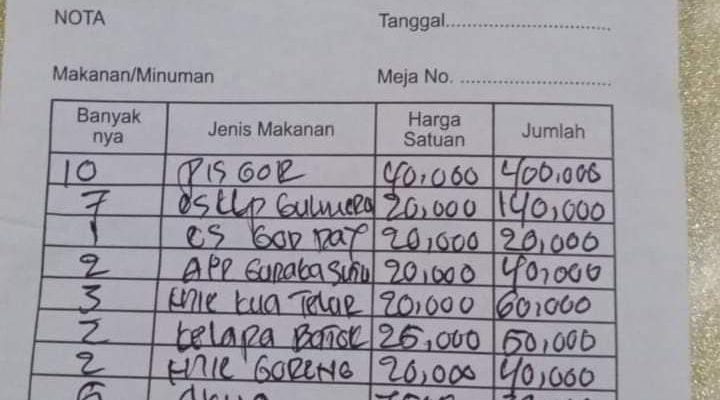 NOTA Tanggal
Makanan/Minuman Meja No.
Banyak nya Jenis Makanan Harga Satuan Jumlah
10 PIS GOR 40,000 400,000
7 20,000 140,000
1 ES 20,000 20,000
2 APP 20,000 40,000
3 MIE KUA TELUR 20,000 60,000
2 KELAPA 25,000 50,000
2 MIE GORENG 20,000 40,000